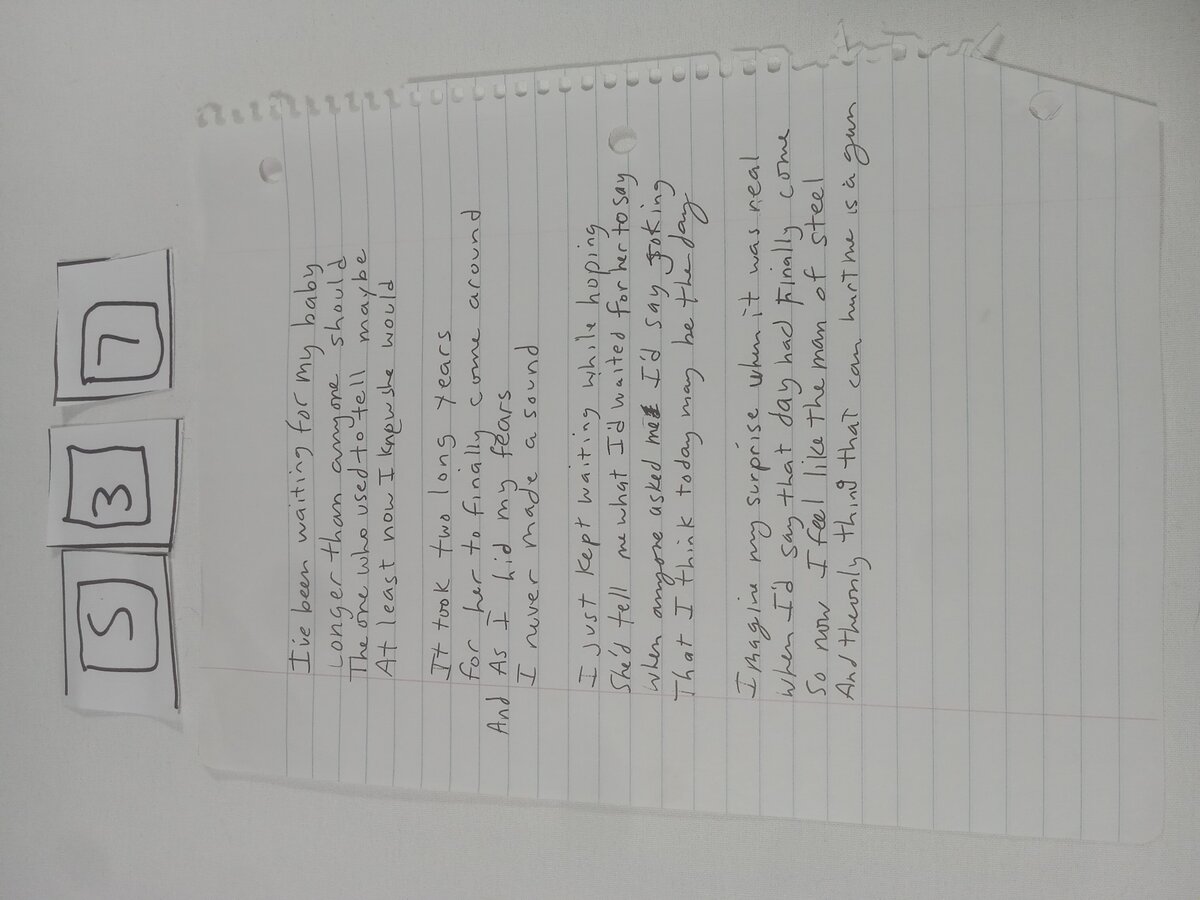 5 3 7
I've been waiting for my baby
Longer than anyone should
The one who used to tell maybe
At least now I know she would
It took two long years
for her to finally come around
And As I hid my fears
I never made a sound
I just kept waiting while hoping
She'd tell me what I'd waited for her to say
When anyone asked me I'd say joking
That I think today may be the day
Imagine my surprise when it was real
When I'd say that day had finally come
So now I feel like the man of steel
And the only thing that can hurt me is a gun